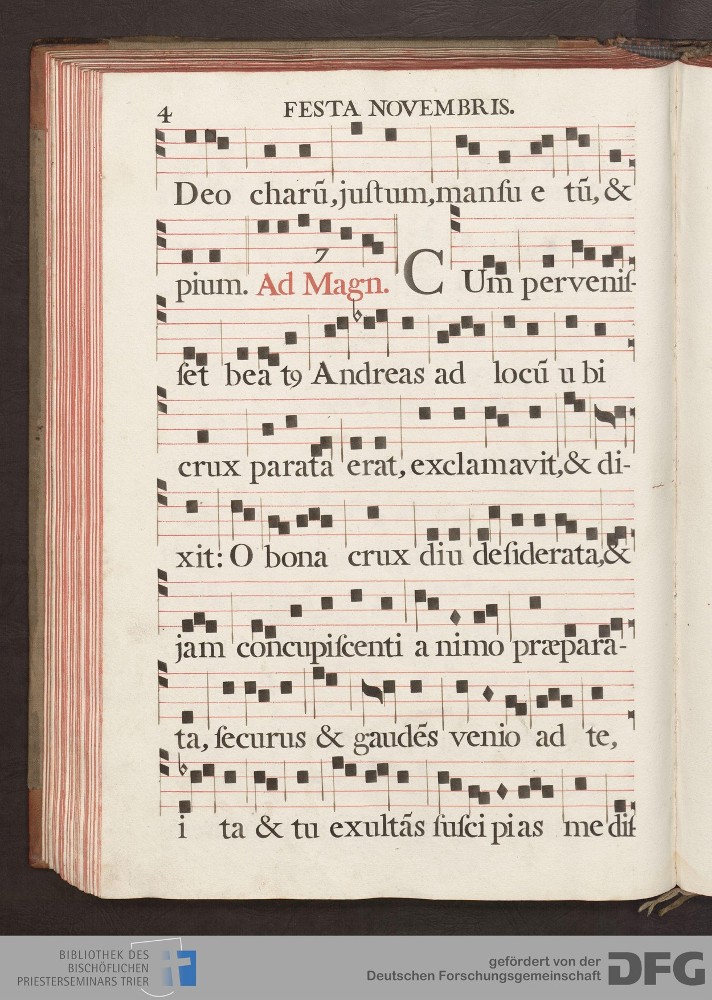 4 FESTA NOVEMBRIS.
Deo charū, juſtum, manſu e tū, &
7
pium. Ad Magn. CUm perveniſ-
ſet bea tꝯ Andreas ad locū u bi
crux parata erat, exclamavit, & di-
xit: O bona crux diu deſiderata, &
jam concupiſcenti a nimo præpara-
ta, ſecurus & gaudēs venio ad te,
i ta & tu exultās ſuſci pi as me diſ-
BIBLIOTHEK DES
BISCHÖFLICHEN
PRIESTERSEMINARS TRIER
gefördert von der
Deutschen Forschungsgemeinschaft DFG